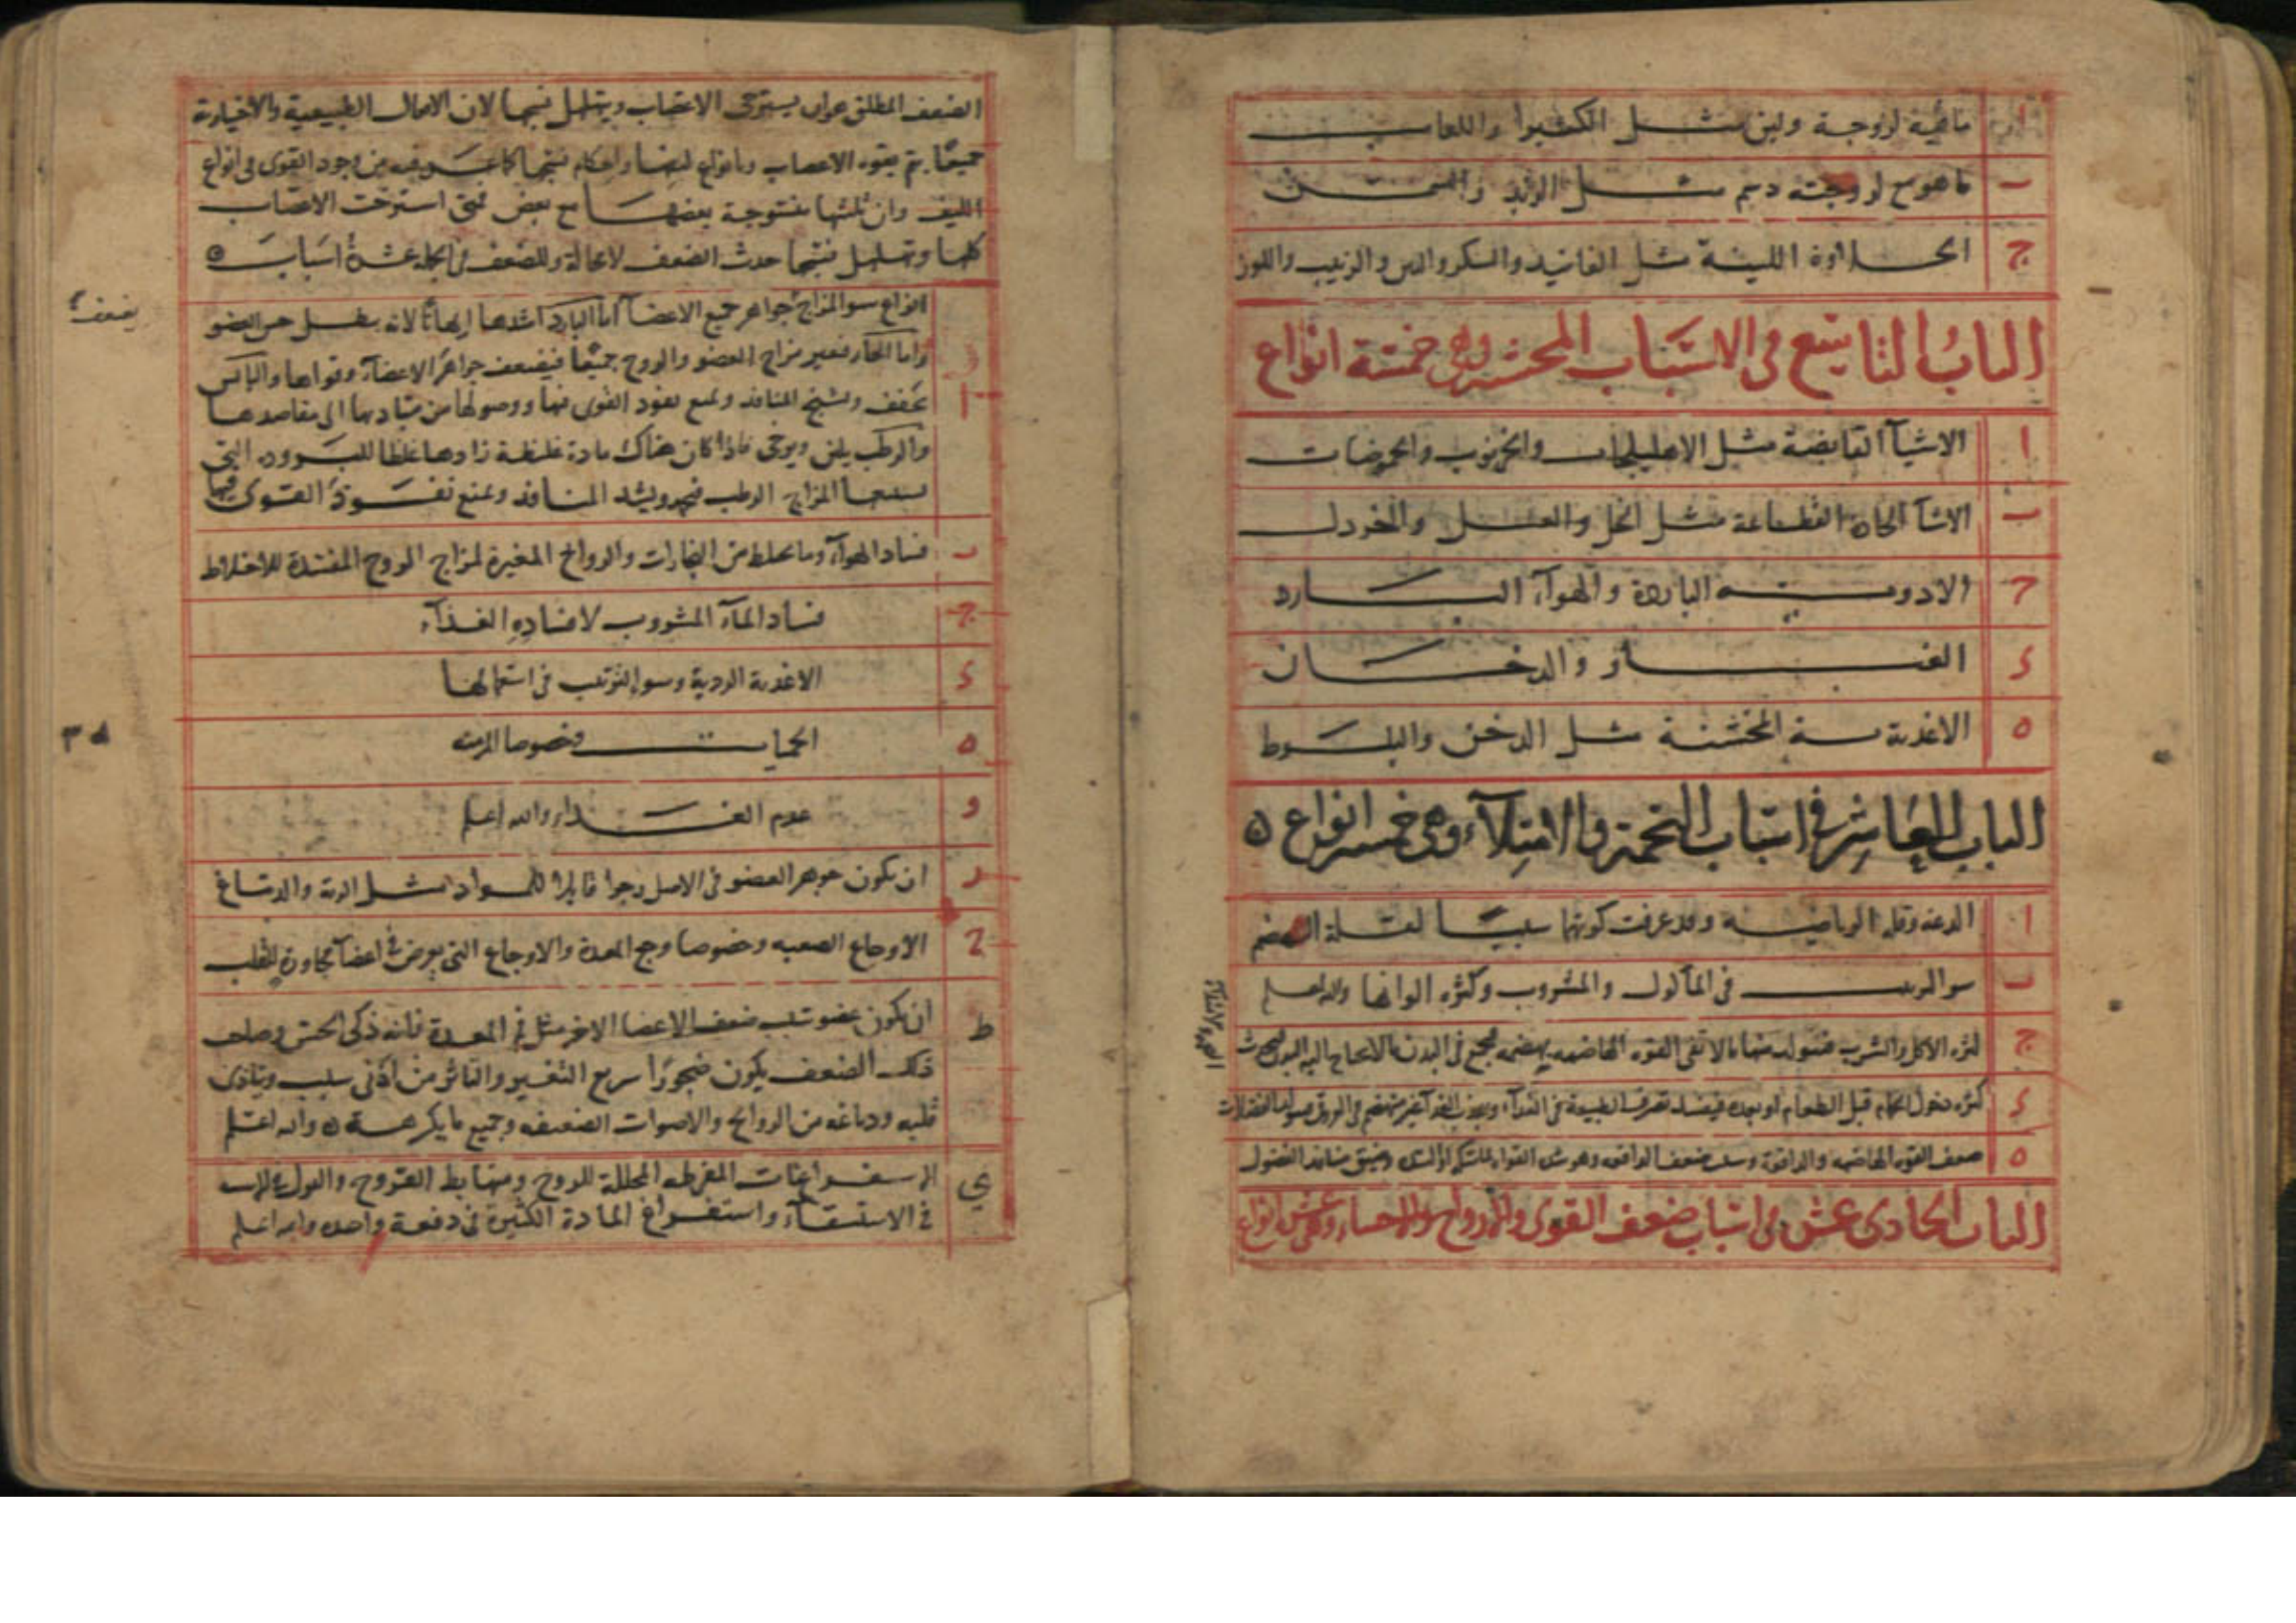 ا ما فيه لزوجة ولين مثل الكثيرا واللعاب
ب ما هو مع لزوجته دسم مثل الزبد والسمن
ج الحلاوة اللينة مثل الفانيد والسكر والتين والزبيب واللوز
الباب التاسع في الاسباب المخشنة وهي خمسة انواع
ا الاشيآ القابضة مثل الاهليلجات والخرنوب والحموضات
ب الاشيآ الحادة القطاعة مثل الخل والعسل والخردل
ج الادوية الباردة والهوآء البارد
د الغبار والدخان
ه الاغذية الخشنة مثل الدخن والبلوط
الباب العاشر في اسباب التخمة والامتلآء وهي خمسة انواع ه
ا الدعة وقلة الرياضة وقد عرفت كونها سببا لقلة الهضم
ب سو الترتيب في المأكول والمشروب وكثرة الوانها والله اعلم
ج كثرة الاكل والشرب فتتولد منها ما لا تفي القوة الهاضمة بهضمه فيجتمع في البدن ما لا يحتاج اليه البدن
د كثرة دخول الحمام قبل الطعام او بعده فيفسد تصرف الطبيعة في الغذآء ويجذب الغذآء غير منهضم في العروق فيتولد الفضلات
ه ضعف القوة الهاضمة والدافعة وسبب ضعف الدافعة وضيق منافذ الفضول
الباب الحادي عشر في اسباب ضعف القوى والارواح والاعضاء وهي عشر انواع
الضعف المطلق هو ان يسترخي الاعصاب ويتهلهل نسجها لان الافعال الطبيعية والاختيارية
جميعًا يتم بقوة الاعصاب وبانواع ليفها واحكام نسجها كما عرفته من وجود القوى في انواع
الليف وان ثلثتها منسوجة بعضها مع بعض فمتى استرخت الاعصاب
كلها وتهلهل نسجها حدث الضعف لا محالة وللضعف في الجملة عشرة اسباب ه
يضعف
ا انواع سو المزاج جواهر جميع الاعضآ اما البارد اشدها ايهانًا لانه يبطل حس العضو
واما الحار فيغير مزاج العضو والروح جميعًا فيضعف جواهر الاعضآء وقواها واليابس
يجفف ويشنج المنافذ ويمنع نفوذ القوى فيها ووصولها من مباديها الى مقاصدها
والرطب يلين ويرخي فاذا كان هناك مادة غليظة زادها غلظا للبرودة التي
المزاج الرطب ويشد المنافذ ويمنع نفوذ القوى فيها
ب فساد الهوآء وما يخلط من البخارات والروائح المغيرة لمزاج الروح المفسدة للاخلاط
ج فساد المآء المشروب لافساده الغذآء
د الاغذية الردية وسو الترتيب في استعمالها
ه الحميات وخصوصا المزمنة
و عدم الغذاء والله اعلم
ز ان يكون جوهر العضو في الاصل رخوا قابلا للمواد مثل الرية والدماغ
ح الاوجاع الصعبة وخصوصا وجع المعدة والاوجاع التي يعرض في اعضآء مجاورة للقلب
ط ان يكون عضو سبب ضعف الاعضا الاخر مثل فم المعدة فانه ذكي الحس وصاحب
ذلك الضعف يكون ضجورًا سريع التغير والتاثر من ادنى سبب ويتاذى
قلبه ودماغه من الروائح والاصوات الضعيفة وجميع ما يكرهه ه والله اعلم
ي الاستفراغات المفرطة المحللة للروح ومنها بط القروح والبزل
في الاستسقآء واستفراغ المادة الكثيرة في دفعة واحدة والله اعلم